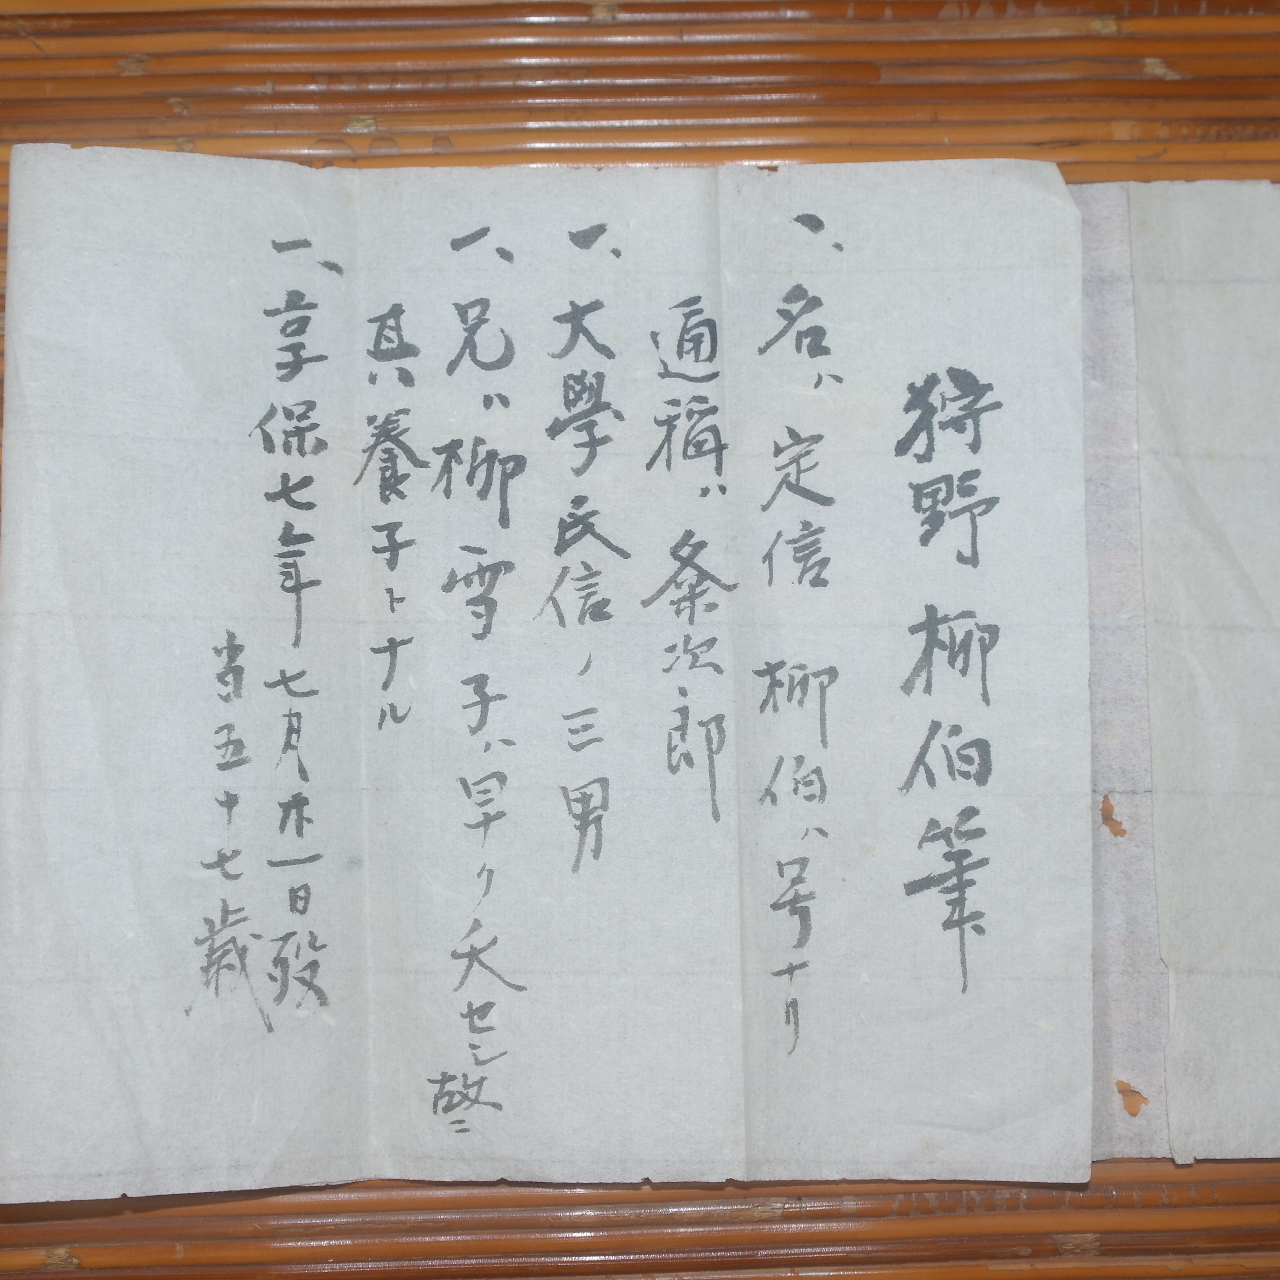 狩野柳伯筆
一、名ハ定信 柳伯ハ号ナリ
通稱ハ粂次郎
一、大學氏信ノ三男
一、兄ハ柳雪子ハ早ク夭セシ故ニ
其ハ養子トナル
一、享保七年七月廿一日歿
当五十七歳